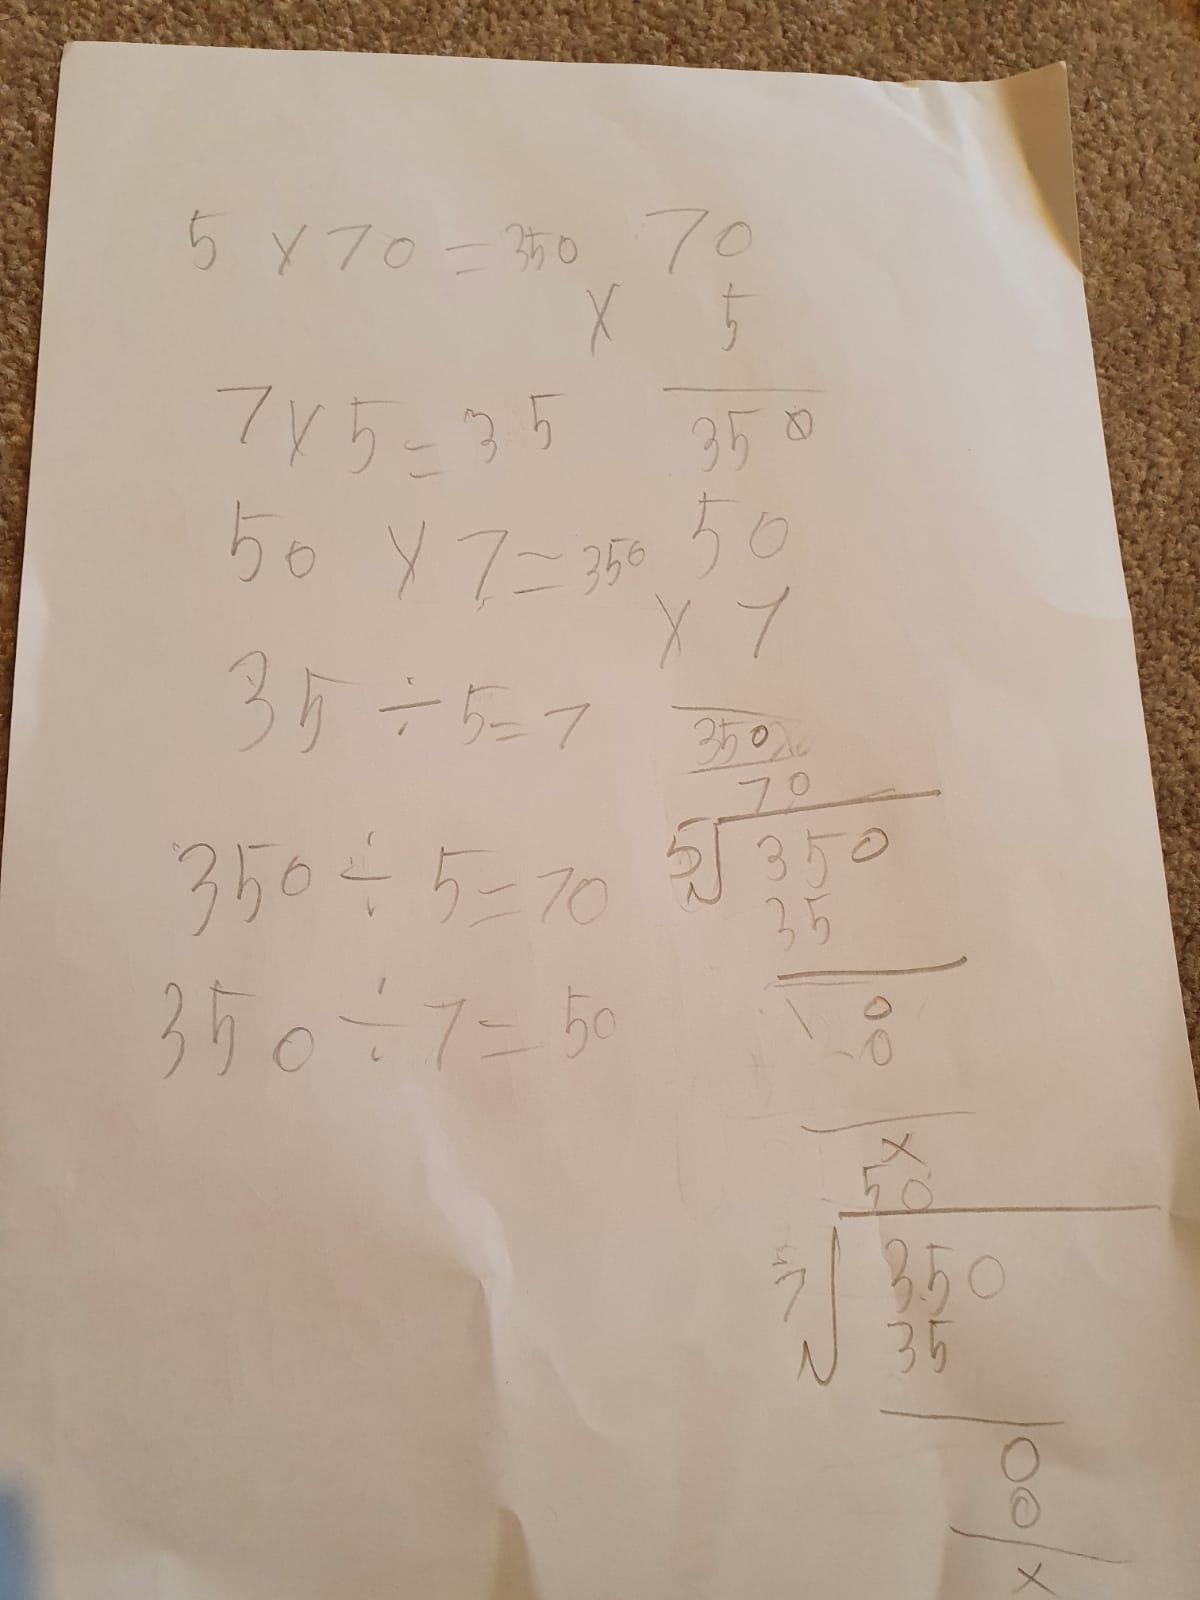 5 × 70 = 350
70
× 5
350
7 × 5 = 35
50 × 7 = 350
50
× 7
350
35 ÷ 5 = 7
350 ÷ 5 = 70
70
5√350
35
0
0
×
350 ÷ 7 = 50
50
7√350
35
0
0
×